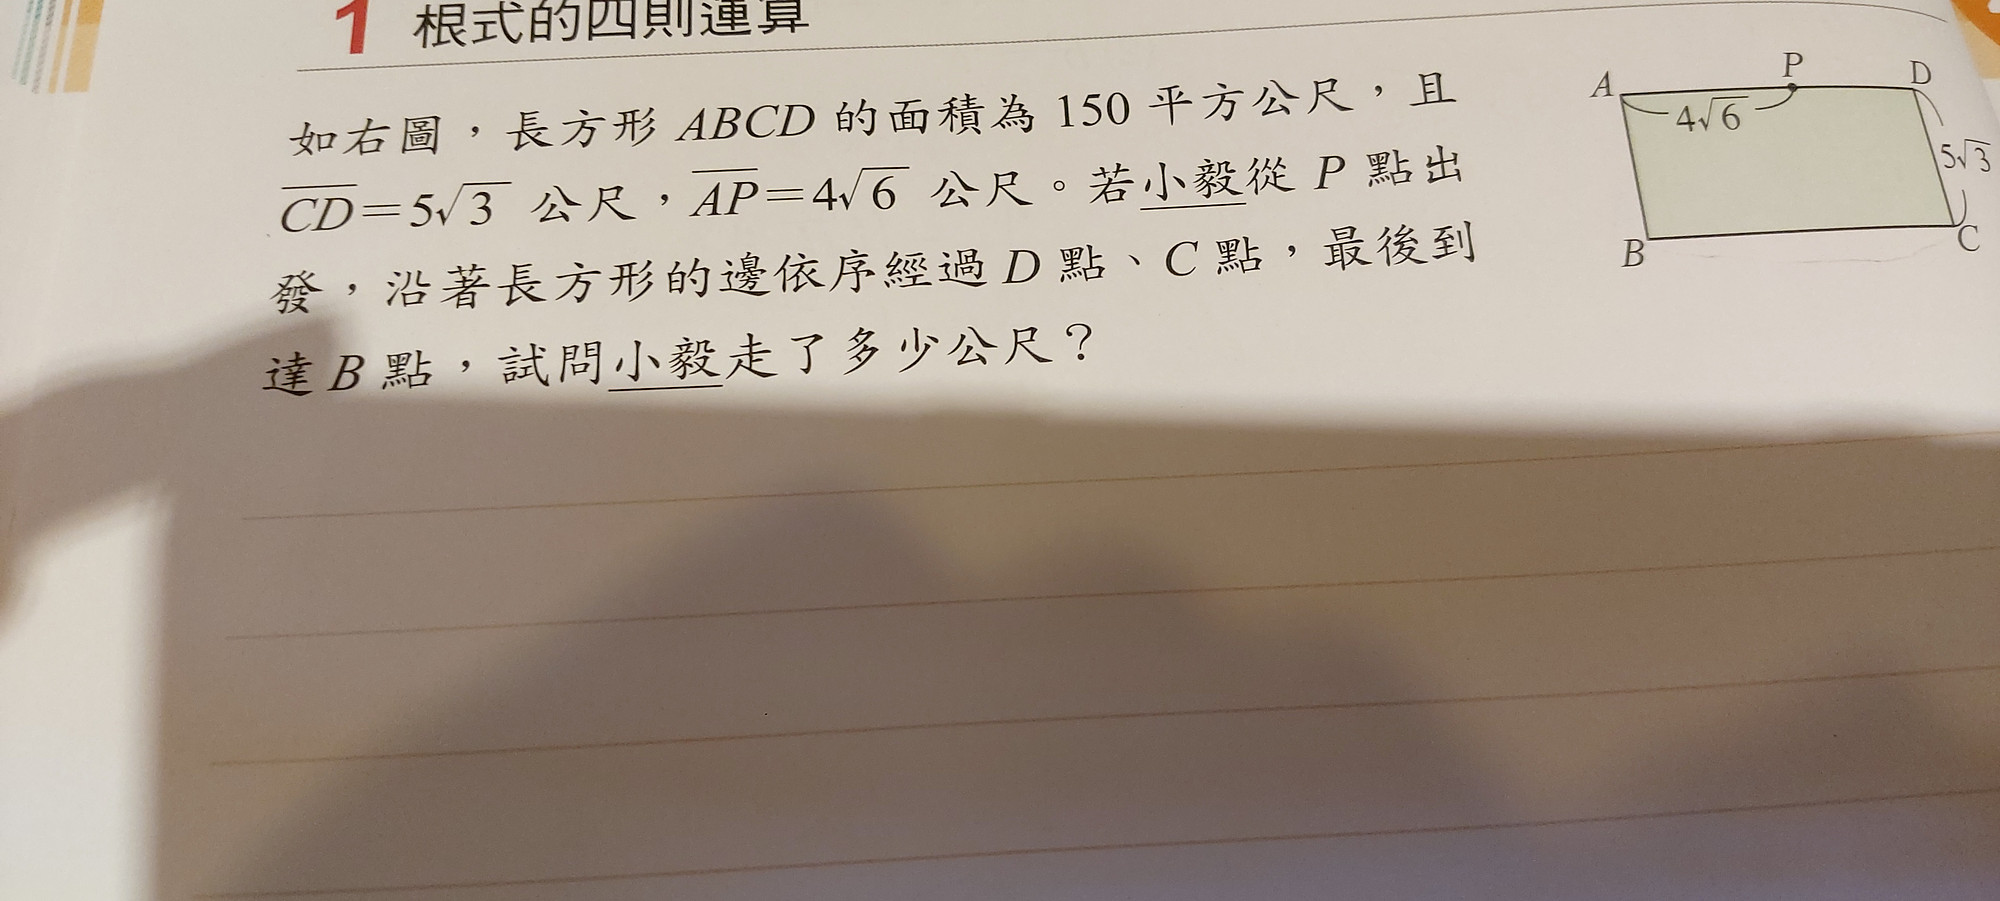 1 根式的四則運算
如右圖，長方形 ABCD 的面積為 150 平方公尺，且
CD＝5√3 公尺，AP＝4√6 公尺。若小毅從 P 點出
發，沿著長方形的邊依序經過 D 點、C 點，最後到
達 B 點，試問小毅走了多少公尺？
A P D
4√6
5√3
B C